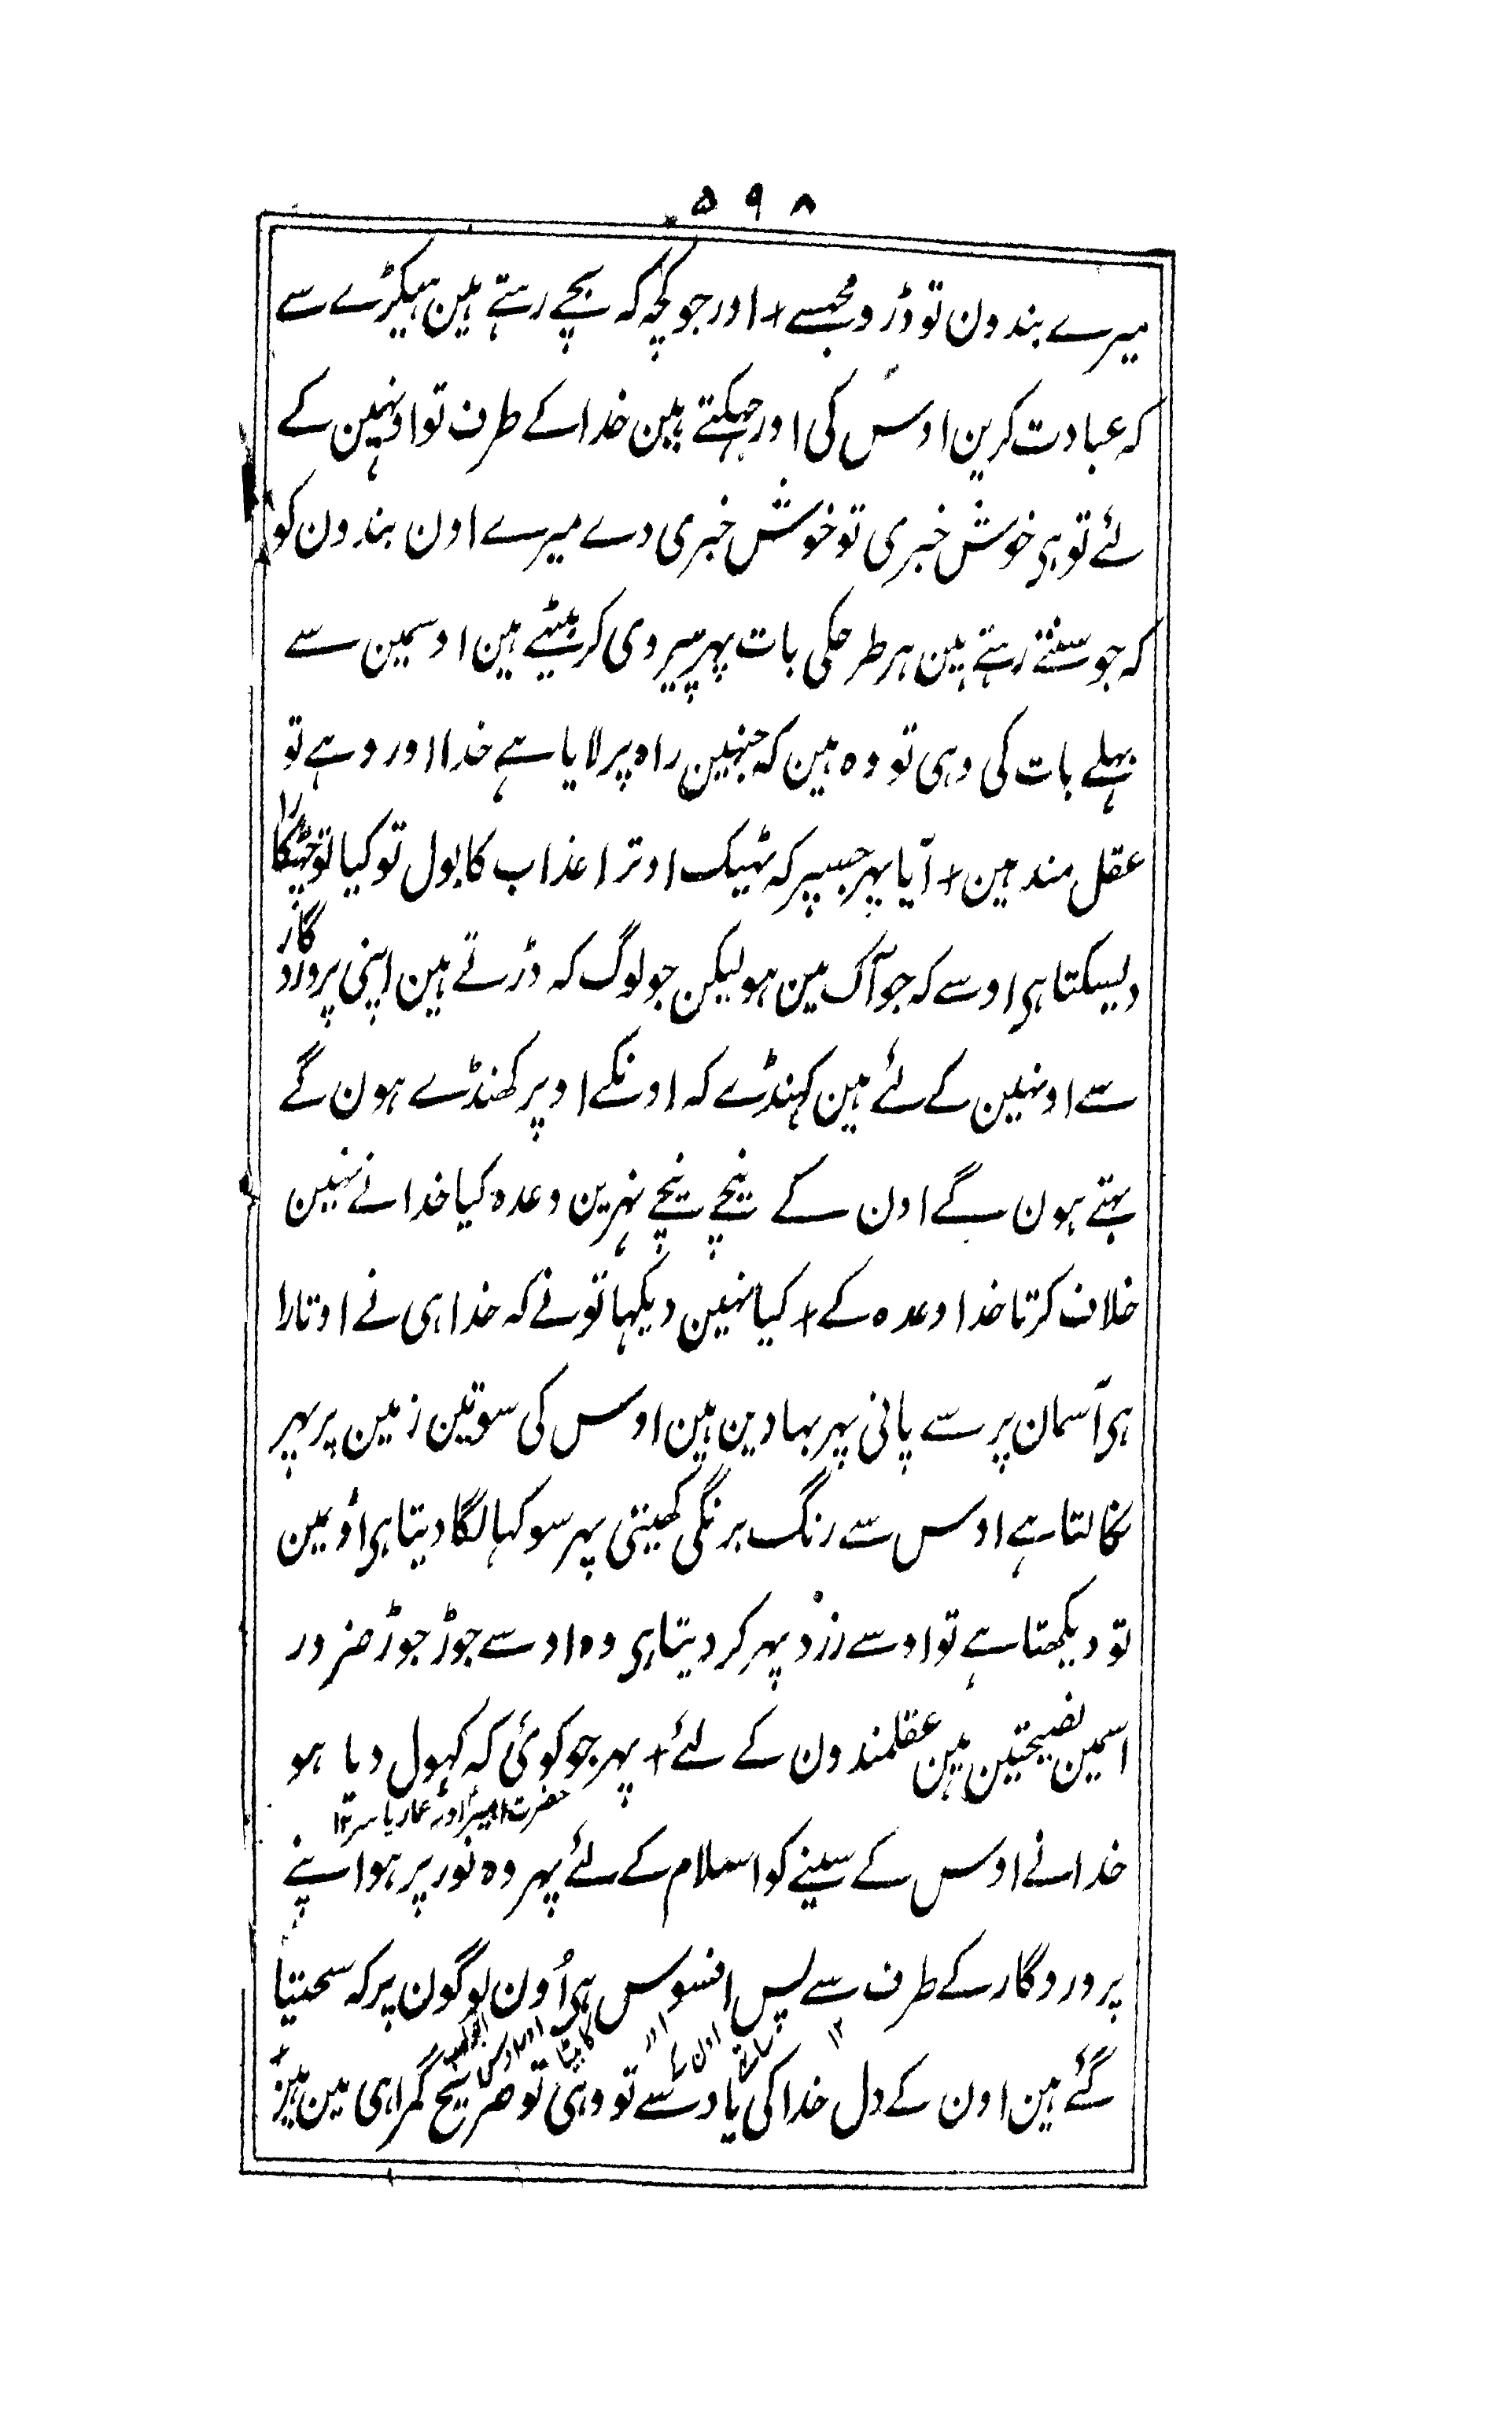 ۵۹۸
میرے بندون تو ڈرو مجہسے + اور جو کچہ کہ بچے رہتے ہین ہیکڑے سے
کہ عبادت کرین اوس کی اور جہکتے ہین خدا کے طرف تو اونہین کے
لئے تو ہی خوش خبری تو خوش خبری دے میرے اون بندون کو
کہ جو سنتے رہتے ہین ہر طرحکی بات پہر پیروی کر بیٹہے ہین اوسمین سے
پہلے بات کی وہی تو وہ ہین کہ جنہین راہ پر لایا ہے خدا اور وہے تو
عقل مند ہین + آیا پہر جسپر کہ ٹہیک اوترا عذاب کا بول تو کیا تو چہٹکارا
دیسکتا ہی اوسے کہ جو آگ مین ہو لیکن جو لوگ کہ ڈرتے ہین اپنی پروردگار
سے اونہین کے لئے ہین کہنڈے کہ اونکے اوپر کھنڈے ہون گے
بہتے ہون گے اون کے نیچے نیچے نہرین وعدہ کیا خدا نے نہین
خلاف کرتا خدا وعدہ کے + کیا نہین دیکہا تو نے کہ خدا ہی نے اوتارا
ہی آسمان پر سے پانی پہر بہا دین ہین اوس کی سوتین زمین پر پہر
نکالتا ہے اوس سے رنگ برنگی کھیتی پہر سوکہا لگا دیتا ہی اُومین
تو دیکھتا ہے تو اوسے زرد پہر کر دیتا ہی وہ اوسے جوڑ جوڑ ضرور
اسمین نصیحتین ہین عقلمندون کے لئے + پہر جو کوئی کہ کہول دیا ہو
حضرت امیرؑ اور عمار یاسر ۱۲
خدا نے اوس کے سینے کو اسلام کے لئے پہر وہ نور پر ہو اپنے
پروردگار کے طرف سے پس افسوس ہی اُون لوگون پر کہ سختیا
۱۲ اور اوسکا بیٹا
گئے ہین اون کے دل خدا کی یاد سے تو وہی تو صریح گمراہی مین ہین +